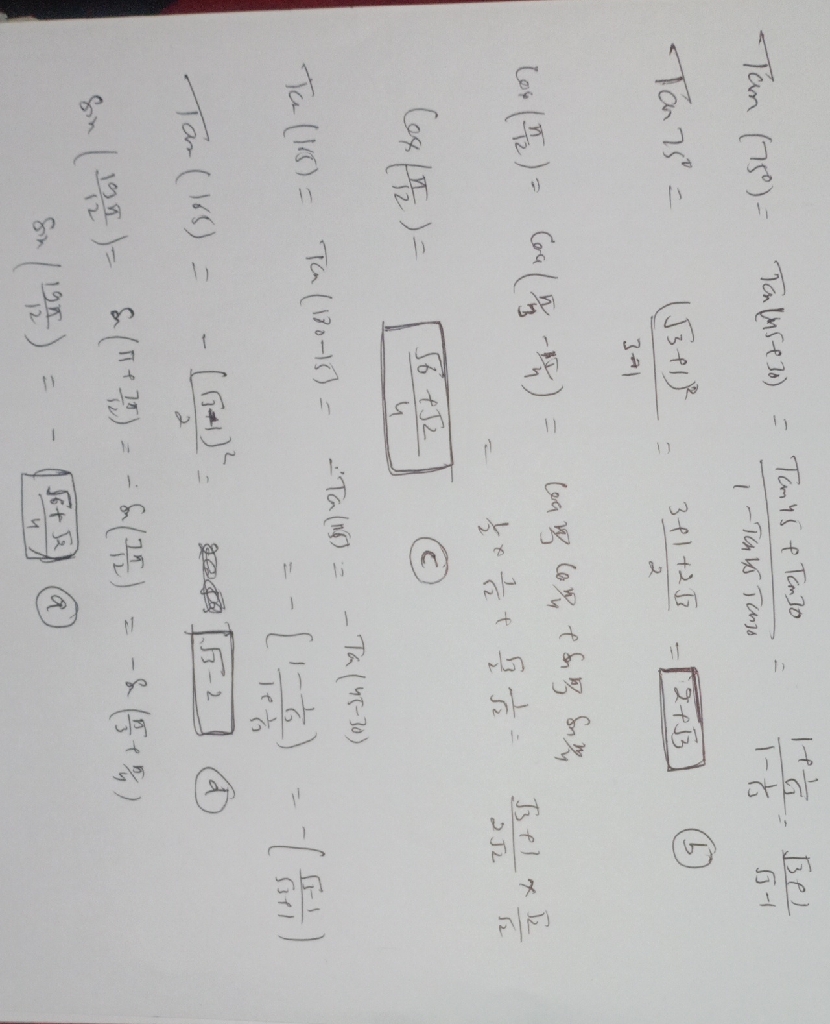 Tan (75°) = Tan(45+30) = Tan45 + Tan30 / 1 - Tan45 Tan30 = 1 + 1/√3 / 1 - 1/√3 = √3+1 / √3-1
Tan 75° = (√3+1)² / 3-1 = 3+1+2√3 / 2 = 2+√3 (b)
Cos(π/12) = Cos(π/3 - π/4) = Cos π/3 Cos π/4 + Sin π/3 Sin π/4
= 1/2 × 1/√2 + √3/2 1/√2 = √3+1 / 2√2 × √2/√2
Cos(π/12) = √6+√2 / 4 (c)
Ta(165) = Ta(180-15) = -Ta(15) = -Ta(45-30)
= -(1 - 1/√3 / 1 + 1/√3) = -(√3-1 / √3+1)
Tan(165) = -(√3-1)² / 2 = √3-2 (d)
Sin(19π/12) = S(π + 7π/12) = -S(7π/12) = -S(π/3 + π/4)
Sin(19π/12) = -(√6+√2 / 4) (a)